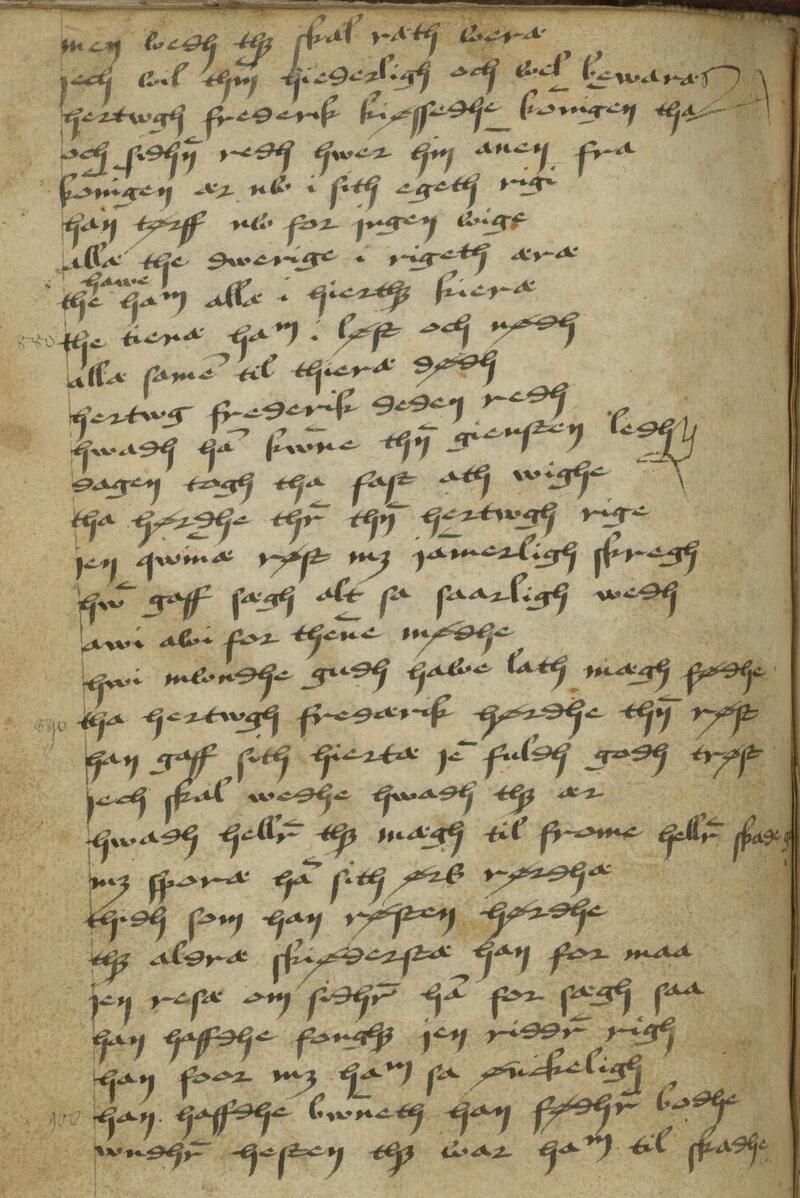 men wedh thꝫ skal rath wæræ
jech wil thm̄ hiederligh och wel bewaræ
hertwgh frederik kiøssedhe kōnigen tha
och sidhn̄ redh hwer hin ānen fra
kōnigen ær nw i sith egeth rigi
han tørff nw for jngen wige
allæ the dwerige i rigeth æræ
hawe
the ham allæ i hierthꝫ kieræ
880 the tienæ ham i løst och nødh
allæ samē til thieræ dødh
hertwg frederik deden redh
hwadh hā kwn̄e thn̄ giensten ledh
dagen togh tha fast ath wighe
tha hørdhe thr̄ thn̄ hertwgh rige
jen qwinæ røst mꝫ jāmerligh skregh
hw̄ gaff sægh alt sa saarligh wedh
awi awi for then̄e mødhe
hwi mwndhe gudh hawe lath mægh fødhe
890 tha hertwgh frederik hørdhe thn̄ røst
han gaff sith hiertæ jē fuldh godh trøst
jech skal wedhe hwadh thꝫ ær
hwadh hellr̄ thꝫ mægh til frome hellr̄ skade
mꝫ sporæ hā sith ørs rørdhæ
thidh som han røsten hørdhe
thꝫ aldræ skiøderstæ han for maa
jen resæ om sidhr̄ hā for sægh saa
han haffdhe fonghꝫ jen riddr̄ righ
han foor mꝫ ham sa ønkeligh
900 han haffdhe bwn̄eth han fødhr̄ bodhe
wndhr̄ hesten thꝫ war ham til skadhe